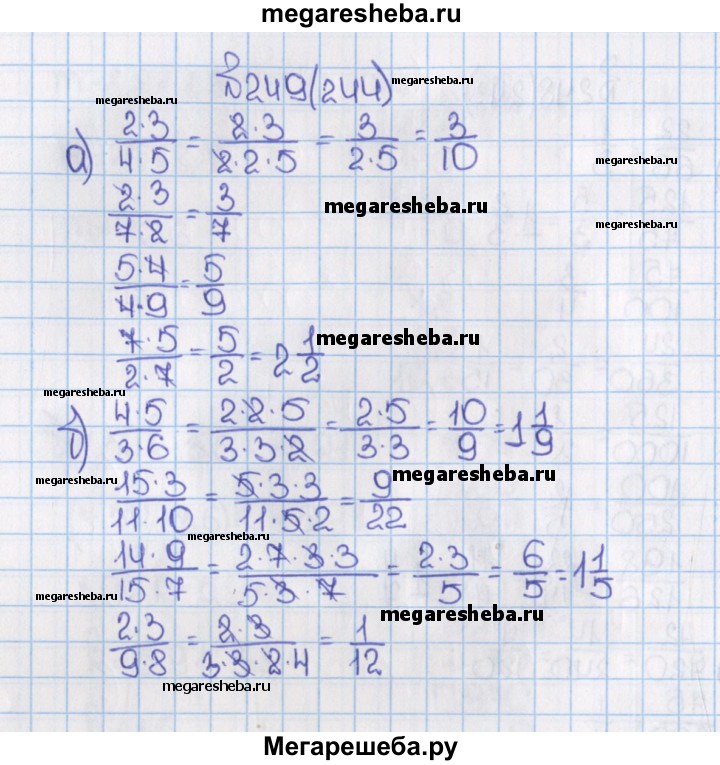 megaresheba.ru
№249(244)
megaresheba.ru megaresheba.ru
а) 2·3/4·5 = 2·3/2·2·5 = 3/2·5 = 3/10
megaresheba.ru
2·3/7·2 = 3/7 megaresheba.ru megaresheba.ru
5·4/4·9 = 5/9
7·5/2·7 = 5/2 = 2 1/2 megaresheba.ru
megaresheba.ru
б) 4·5/3·6 = 2·2·5/3·3·2 = 2·5/3·3 = 10/9 = 1 1/9
megaresheba.ru megaresheba.ru
15·3/11·10 = 5·3·3/11·5·2 = 9/22
megaresheba.ru
14·9/15·7 = 2·7·3·3/5·3·7 = 2·3/5 = 6/5 = 1 1/5
megaresheba.ru megaresheba.ru
2·3/9·8 = 2·3/3·3·2·4 = 1/12
megaresheba.ru
Мегарешеба.ру